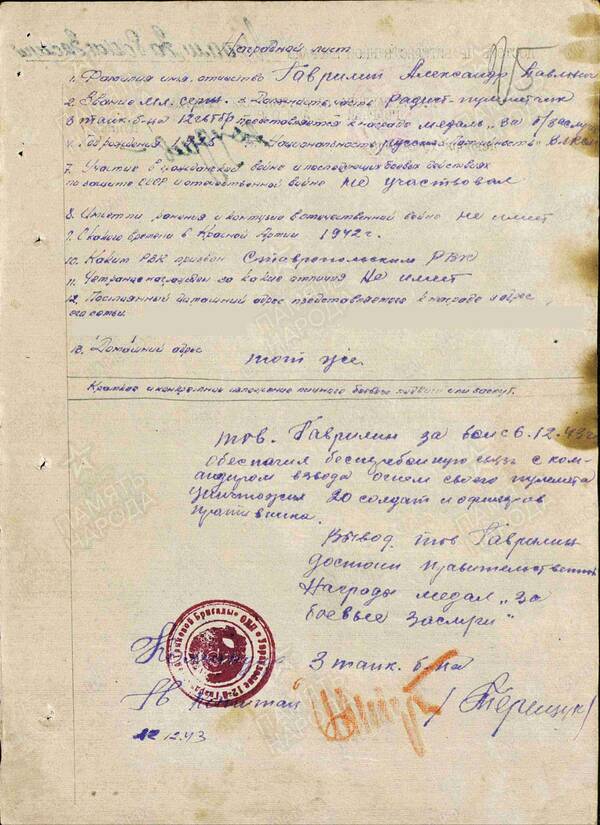 Наградной лист
1. Фамилия имя, отчество Гаврилин Александр Павлович
2. Звание мл. серж. 3. Должность, часть радист-пулеметчик
3 танк. б-на 12 гвтбр представляется к награде медаль „За б/заслуги
Национальность русский Партийность ВЛКСМ
7. Участие в гражданской войне и последующих боевых действиях
по защите СССР и отечественной войне не участвовал
8. Имеет ли ранения и контузии в отечественной войне не имеет
9. С какого времени в Красной Армии 1942 г.
10. Каким РВК призван Ставропольским РВК
11. Чем ранее награжден за какие отличия Не имеет
12. Постоянный домашний адрес представляемого к награде и адрес
его семьи
13. Домашний адрес тот же
Краткое и конкретное изложение личного боевого подвига или заслуг.
тов. Гаврилин за бой с 6.12.43г
обеспечил бесперебойную связь с ком-
андиром взвода огнем своего пулемета
уничтожил 20 солдат и офицеров
противника.
Вывод тов Гаврилин
достоин правительствен
Награды медал „за
боевые заслуги"
Командир 3 танк. б-на
Гв капитан /Терещук/
12.12.43
ПАМЯТЬ
НАРОДА